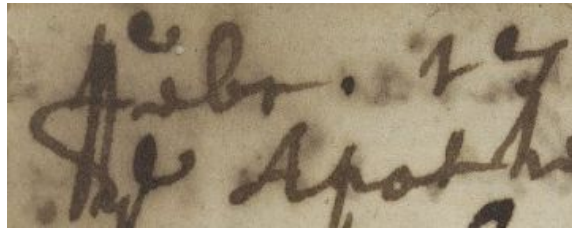 Febr. 17
Apothe